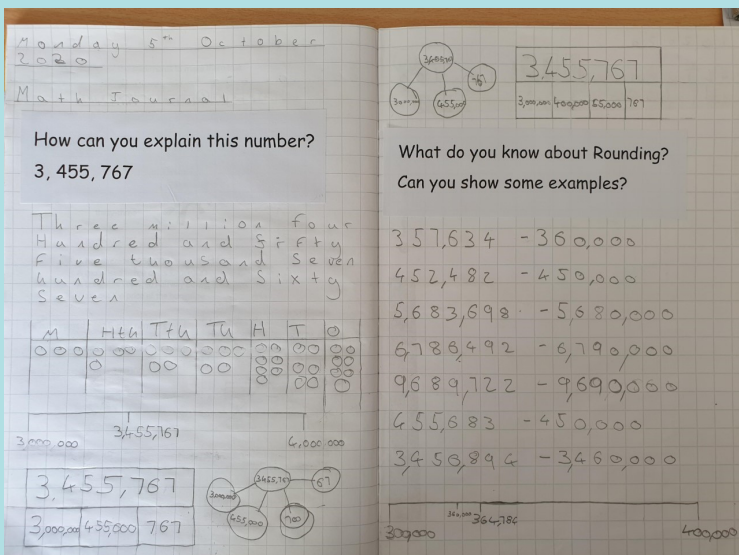 Monday 5th October
2020
Math Journal
How can you explain this number?
3, 455, 767
Three million four
Hundred and fifty
five thousand Seven
hundred and Sixty
Seven
M Hth Tth Th H T O
3,455,767
3,000,000 4,000,000
3,455,767
3,000,000 455,000 767
3,455,767
67
3,000,000
455,000
700
767
3,000,000
455,000
3,455,767
3,000,000 400,000 55,000 767
What do you know about Rounding?
Can you show some examples?
357,634 - 360,000
452,482 - 450,000
5,683,698 - 5,680,000
6,786,492 - 6,790,000
9,689,722 - 9,690,000
455,683 - 450,000
3,456,894 - 3,460,000
360,000
364,784
300,000 400,000